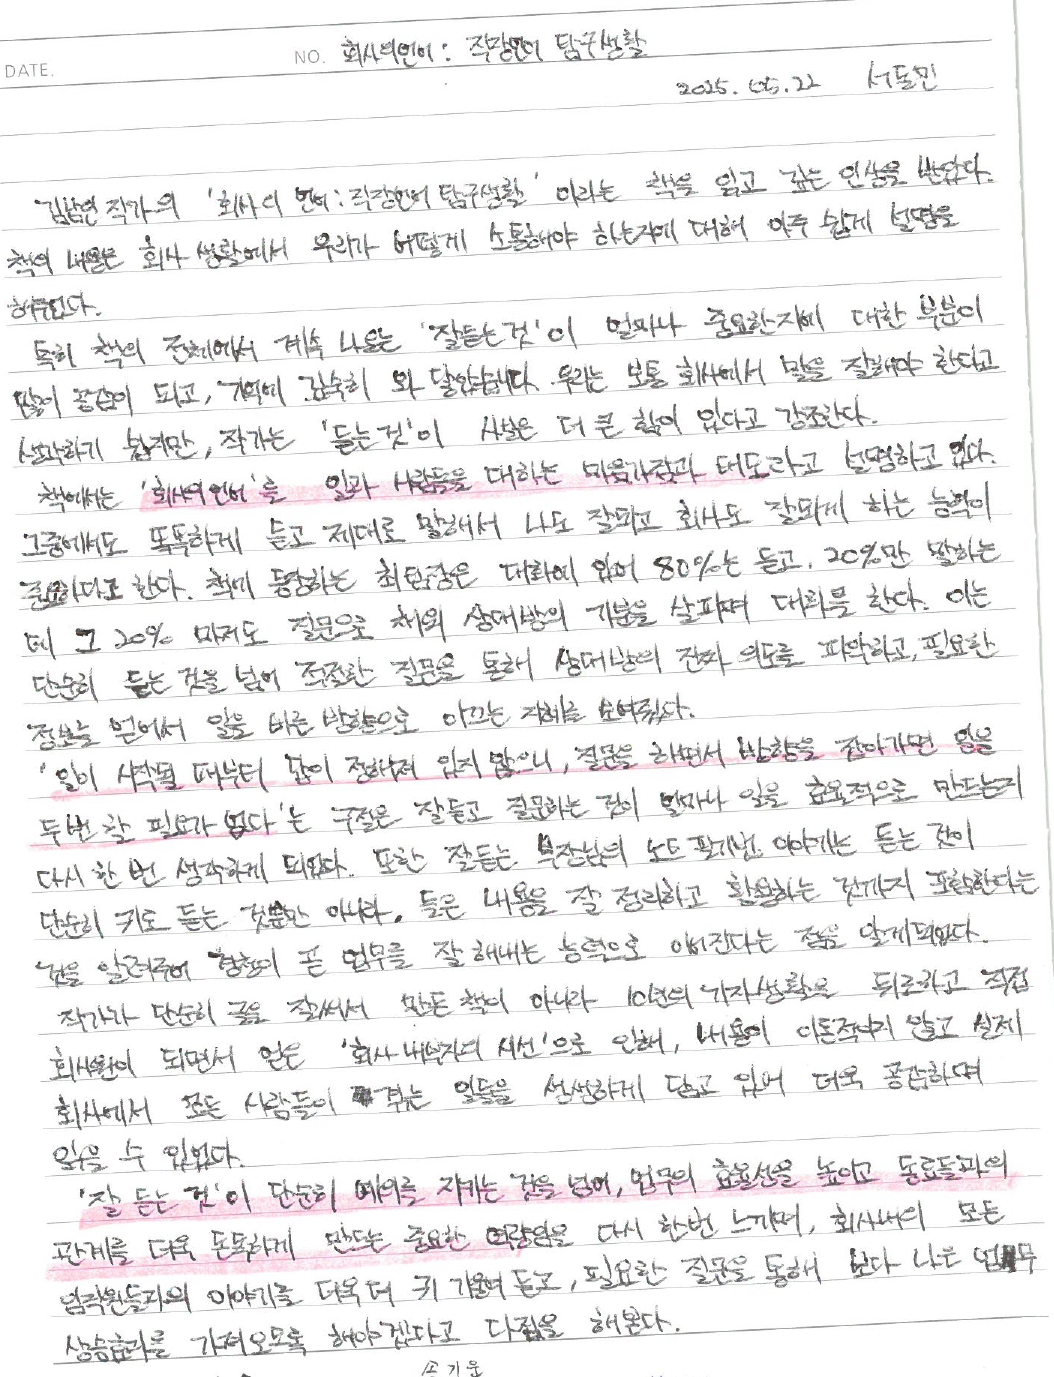 DATE.
NO. 회사의언어: 직장언어 탐구생활
2025. 05. 22 서동민
김남인 작가의 '회사의 언어: 직장언어 탐구생활' 이라는 책을 읽고 깊은 인상을 받았다.
책의 내용은 회사 생활에서 우리가 어떻게 소통해야 하는지에 대해 아주 쉽게 설명을
해주었다.
특히 책의 전체에서 계속 나오는 '잘듣는것'이 얼마나 중요한지에 대한 부분이
많이 공감이 되고, 기억에 깊숙히 와 닿았습니다. 우리는 보통 회사에서 말을 잘해야 한다고
생각하기 쉽지만, 작가는 '듣는것'이 사실은 더 큰 힘이 있다고 강조한다.
책에서는 '회사의 언어'를 일과 사람들을 대하는 마음가짐과 태도라고 설명하고 있다.
그중에서도 똑똑하게 듣고 제대로 말해서 나도 잘되고 회사도 잘되게 하는 능력이
중요하다고 한다. 책에 등장하는 최팀장은 대화에 있어 80%는 듣고, 20%만 말하는
데 그 20% 마저도 질문으로 채워 상대방의 기분을 살피며 대화를 한다. 이는
단순히 듣는 것을 넘어 적절한 질문을 통해 상대방의 진짜 의도를 파악하고, 필요한
정보를 얻어서 일을 바른 방향으로 이끄는 지혜를 보여줬다.
'일이 시작될 때부터 답이 정해져 있지 않으니, 질문을 하면서 방향을 잡아가면 일을
두번 할 필요가 없다'는 구절은 잘듣고 질문하는 것이 얼마나 일을 효율적으로 만드는지
다시 한 번 생각하게 되었다. 또한 잘듣는 부장님의 노트 필기법 이야기는 듣는 것이
단순히 귀로 듣는 것뿐만 아니라, 들은 내용을 잘 정리하고 활용하는 것까지 포함한다는
것을 알려주어 경청이 곧 업무를 잘 해내는 능력으로 이어진다는 점을 알게되었다.
작가가 단순히 글을 잘써서 만든 책이 아니라 10년의 기자생활을 뒤로하고 직접
회사원이 되면서 얻은 '회사 내부자의 시선'으로 인해, 내용이 이론적이지 않고 실제
회사에서 모든 사람들이 겪는 일들을 생생하게 담고 있어 더욱 공감하며
읽을 수 있었다.
'잘 듣는 것'이 단순히 예의를 지키는 것을 넘어, 업무의 효율성을 높이고 동료들과의
관계를 더욱 돈독하게 만드는 중요한 역량임을 다시 한번 느끼며, 회사내의 모든
임직원들과의 이야기를 더욱 더 귀 기울여 듣고, 필요한 질문을 통해 보다 나은 업무
상승효과를 가져오도록 해야겠다고 다짐을 해본다.